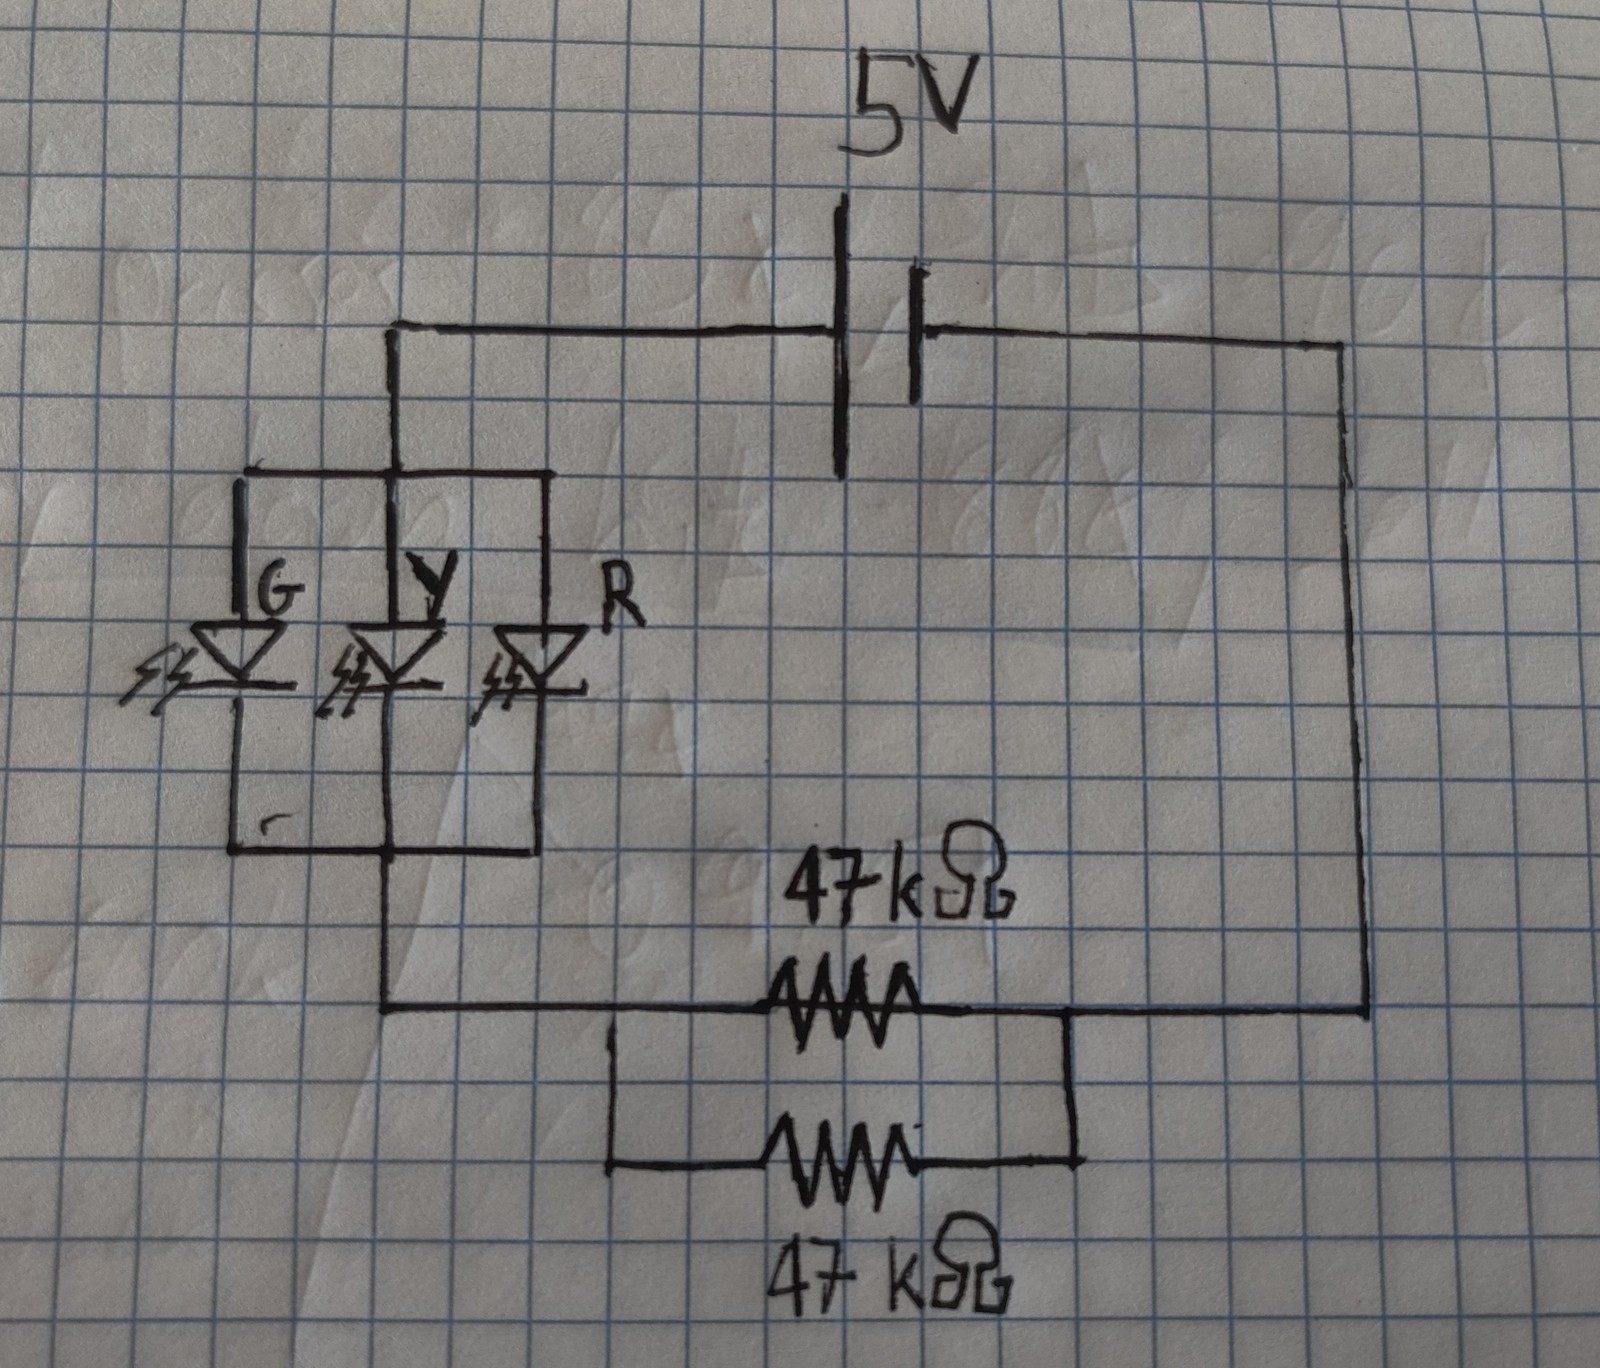 5V
G Y R
47kΩ
47kΩ